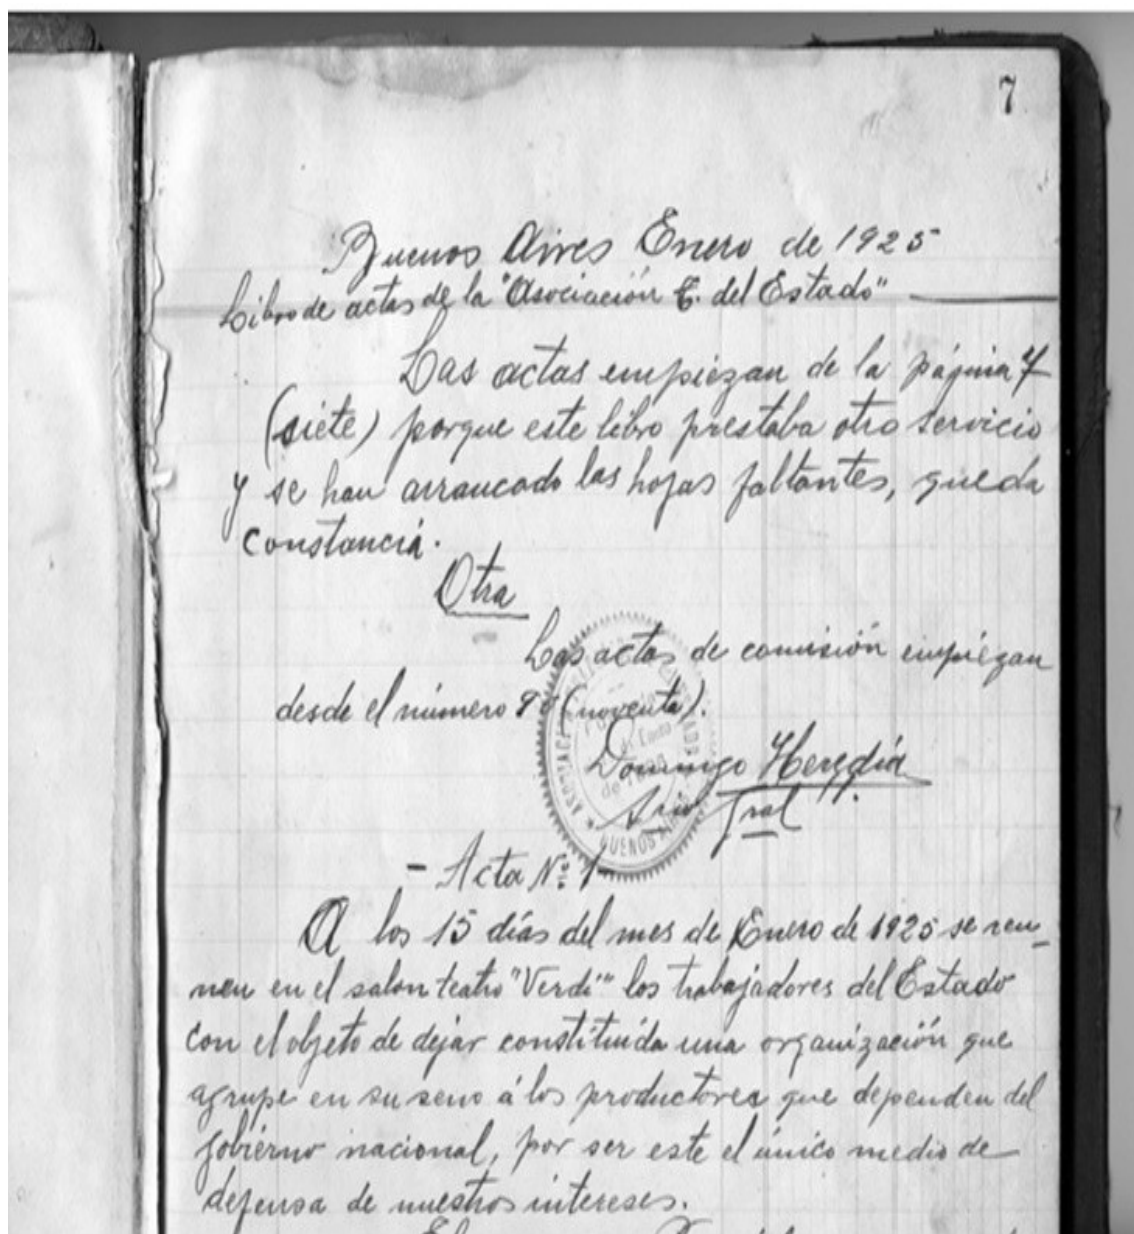 7
Buenos Aires Enero de 1925
Libro de actas de la "Asociación T. del Estado"
Las actas empiezan de la página 7
(siete) porque este libro prestaba otro servicio
y se han arrancado las hojas faltantes, queda
constancia.
Otra
Las actas de comisión empiezan
desde el número 90 (noventa).
Domingo Heredia
Srio Gral
BUENOS
- Acta Nº 1 -
A los 15 días del mes de Enero de 1925 se reu-
nen en el salon teatro "Verdi" los trabajadores del Estado
con el objeto de dejar constituída una organización que
agrupe en su seno á los productores que dependen del
gobierno nacional, por ser este el único medio de
defensa de nuestros intereses.